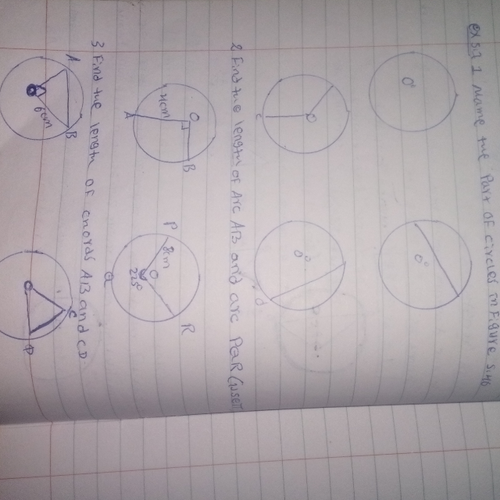 ex 5.3 1 Name the Part of circles in Figure 5.46
O
O
O
C
O
d
2 Find the length of Arc AB and arc PQR (use π
O
4cm
A
B
P
8cm
O
225°
Q
R
3 Find the length of chords AB and CD
A
B
6cm
O
C
D